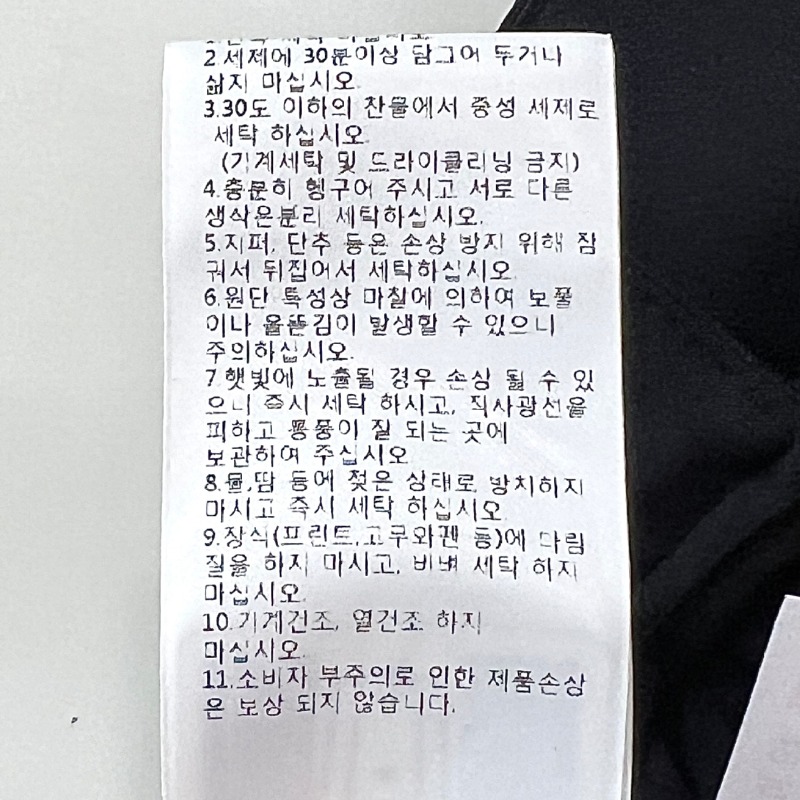 2.세제에 30분이상 담그어 두거나
삶지 마십시오.
3.30도 이하의 찬물에서 중성 세제로
세탁 하십시오.
(기계세탁 및 드라이클리닝 금지)
4.충분히 헹구어 주시고 서로 다른
생삭은분리 세탁하십시오.
5.지퍼, 단추 등은 손상 방지 위해 잠
궈서 뒤집어서 세탁하십시오.
6.원단 특성상 마찰에 의하여 보풀
이나 올뜯김이 발생할 수 있으니
주의하십시오.
7.햇빛에 노출될 경우 손상 될 수 있
으니 즉시 세탁 하시고, 직사광선을
피하고 통풍이 잘 되는 곳에
보관하여 주십시오.
8.물,땀 등에 젖은 상태로 방치하지
마시고 즉시 세탁 하십시오.
9.장식(프린트,고무와펜 등)에 다림
질을 하지 마시고, 비벼 세탁 하지
마십시오.
10.기계건조, 열건조 하지
마십시오.
11.소비자 부주의로 인한 제품손상
은 보상 되지 않습니다.